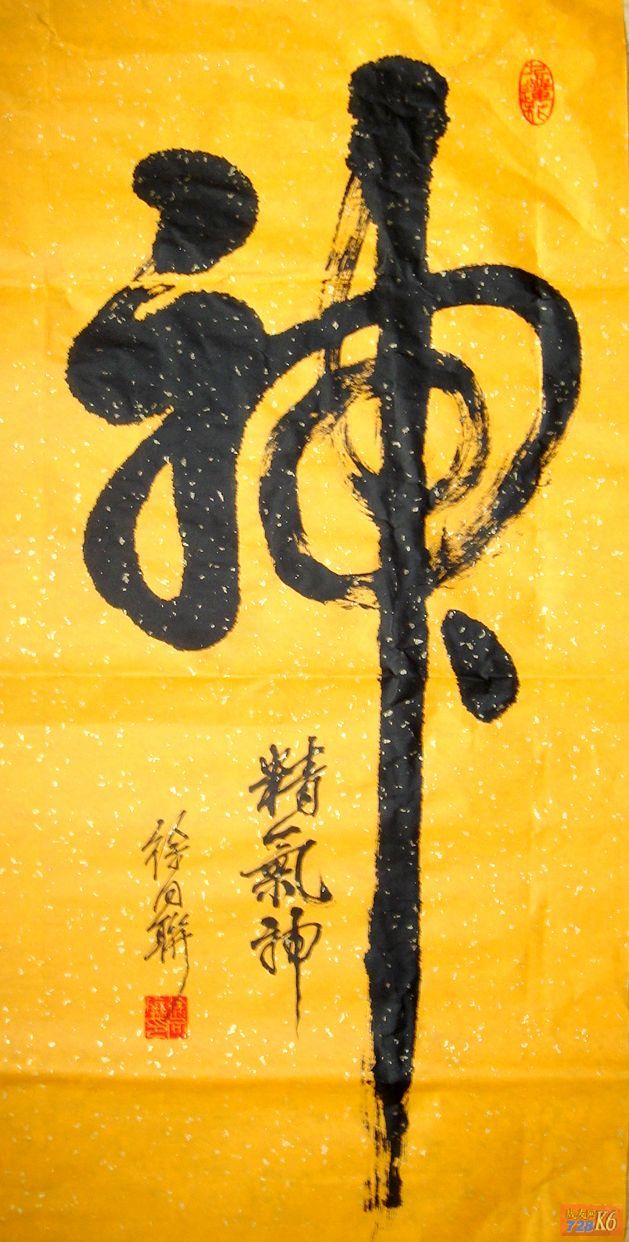 神
精氣神
徐同聯
战友网
728K6